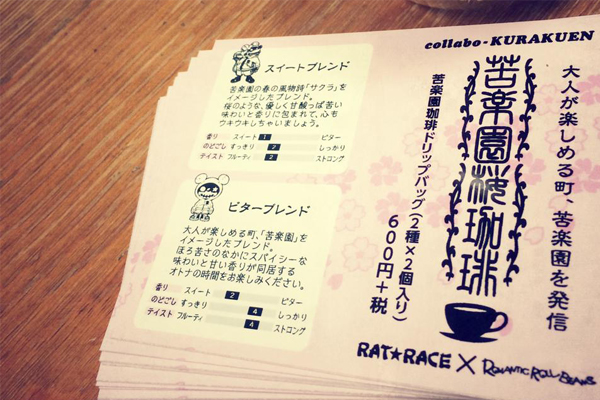 collabo-KURAKUEN
大人が楽しめる町、苦楽園を発信
苦楽園桜珈琲
苦楽園珈琲ドリップバッグ(2種×2個入り)
600円+税
RAT★RACE × ROMANTIC ROLL BEANS
スイートブレンド
苦楽園の春の風物詩「サクラ」を
イメージしたブレンド。
桜のような、優しく甘酸っぱ苦い
味わいと香りに包まれて、心も
ウキウキしちゃいましょう。
香り スイート 1 ビター
のどごし すっきり 2 しっかり
テイスト フルーティ 2 ストロング
ビターブレンド
大人が楽しめる町、「苦楽園」を
イメージしたブレンド。
ほろ苦さのなかにスパイシーな
味わいと甘い香りが同居する
オトナの時間をお楽しみください。
香り スイート 2 ビター
のどごし すっきり 4 しっかり
テイスト フルーティ 4 ストロング